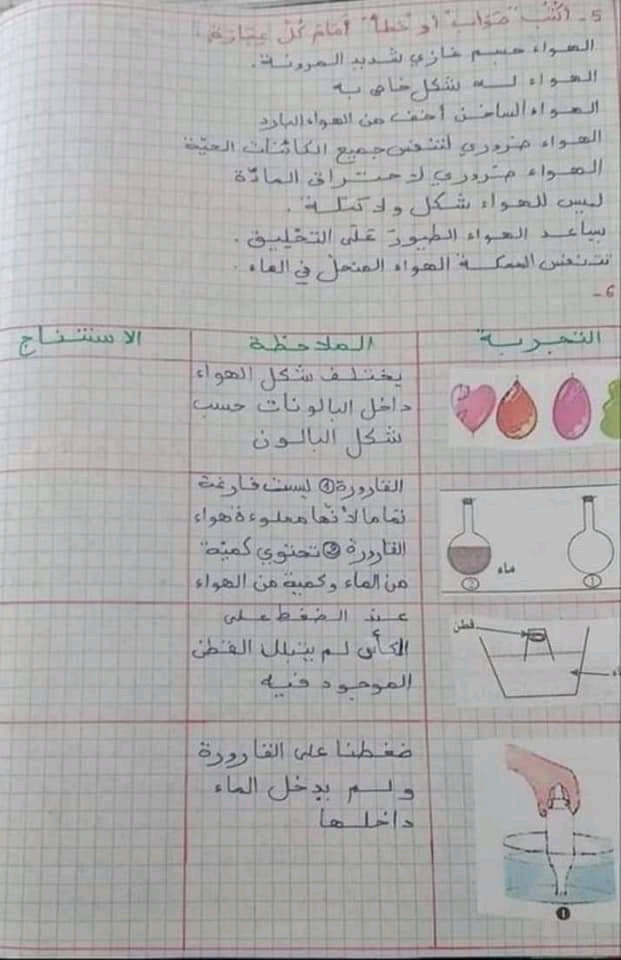 5 - أكتب "صواب" أو "خطأ" أمام كل عبارة:
الهواء جسم غازي شديد المرونة.
الهواء له شكل خاص به
الهواء الساخن أخف من الهواء البارد
الهواء ضروري لتنفس جميع الكائنات الحية
الهواء ضروري لاحتراق المادة
ليس للهواء شكل ولا كتلة.
يساعد الهواء الطيور على التحليق.
تتنفس السمكة الهواء المنحل في الماء.
6 -
التجربة الملاحظة الاستنتاج
يختلف شكل الهواء
داخل البالونات حسب
شكل البالون
القارورة ① ليست فارغة
تماما لأنها مملوءة هواء
القارورة ② تحتوي كمية
من الماء وكمية من الهواء
ماء
②
①
عند الضغط على
الكأس لم يتبلل القطن
الموجود فيه
قطن
ضغطنا على القارورة
ولم يدخل الماء
داخلها
❶